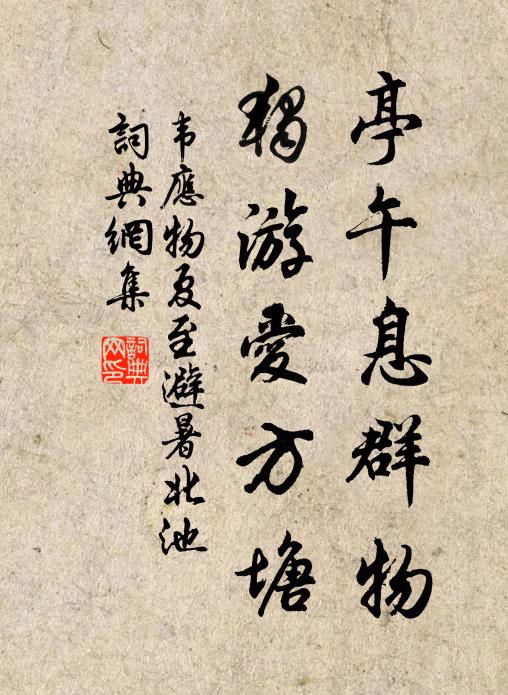 亭午息群物
獨游愛方塘
韦應物夏至避暑北池
詞典網集
詞典網印